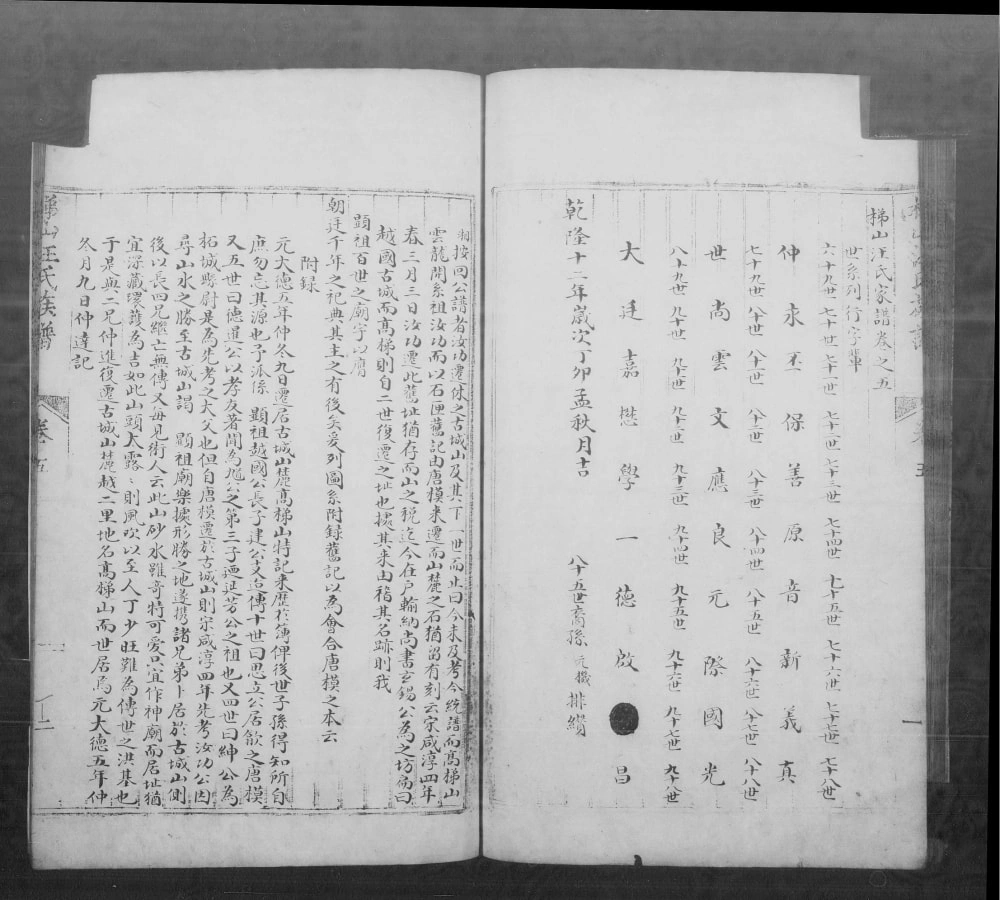 梯山汪氏家譜卷之五
世系列行字輩
六十九世 七十世 七十一世 七十二世 七十三世 七十四世 七十五世 七十六世 七十七世 七十八世
仲永丞保善原音新義真
七十九世 八十世 八十一世 八十二世 八十三世 八十四世 八十五世 八十六世 八十七世 八十八世
世尚雲文應良元際國光
八十九世 九十世 九十一世 九十二世 九十三世 九十四世 九十五世 九十六世 九十七世 九十八世
大廷嘉懋學一德啟 昌
乾隆十二年歲次丁卯孟秋月吉 八十五世裔孫元機排纘
按回公譜者汝功遷休之古城山及其下一世而止曰今未及考今統譜而髙梯山
雲龍開系祖汝功而以石匣舊記由唐模来遷而山麓之石猶留有刻云宋咸淳四年
春三月三日汝功遷此舊址猶存而山之税迄今在户輸納尚書玄錫公為之坊扁曰
越國古城而髙梯則自二世復遷之址也據其来由稽其名跡則我
顕祖百世之廟宇以膺
朝廷千年之祀典其主之有後矣爰列圖系附録舊記以為會合唐模之本云
附録
元大德五年仲冬九日遷居古城山麓髙梯山特記来歷於薄俾後世子孫得知所自
庶勿忘其源也予派係 顕祖越國公長子建公支逓傳十世曰思立公居歙之唐模
又五世曰德暹公以孝友著聞為 公之第三子廼延芳公之祖也又四世曰紳公為
柘城縣尉是為先考之大父也但自唐模遷於古城山則宋咸淳四年先考汝功公因
尋山水之勝至古城山謁 顕祖廟樂據形勝之地遂携諸兄弟卜居於古城山側
後以長四兄繼亡無傳又每見術人云此山砂水雖竒特可愛只宜作神廟而居址猶
宜深藏環護為吉如此山頭太露〻則風吹以至人丁少旺難為傳世之洪基也
于是與二兄仲進復遷古城山麓越二里地名髙梯山而世居焉元大德五年仲
冬月九日仲達記
梯山汪氏族譜
卷五
二